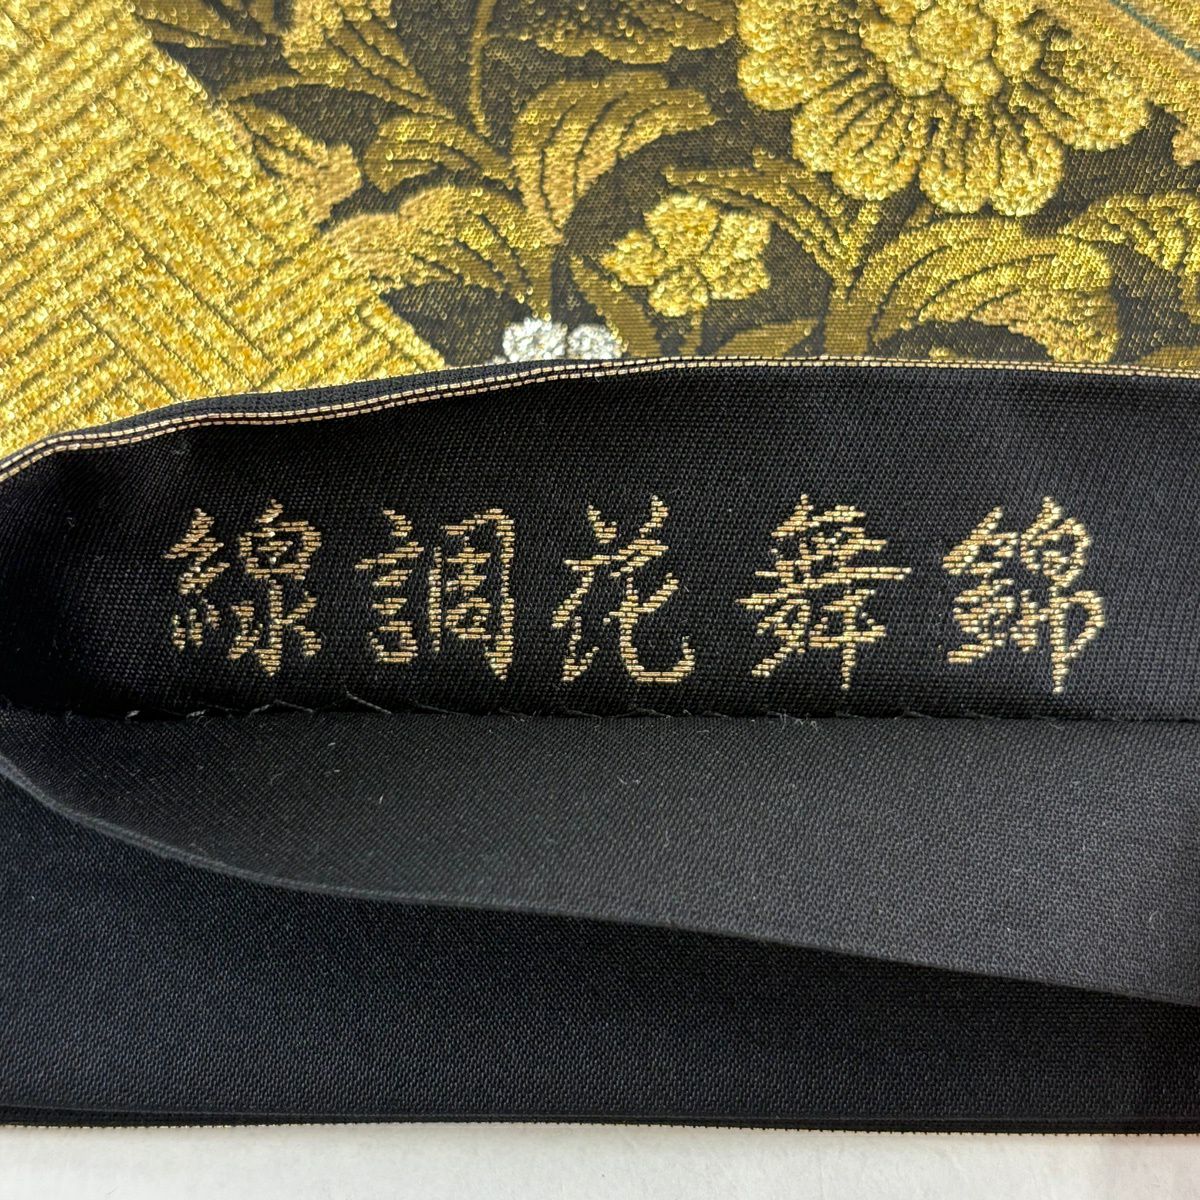 線調花舞錦